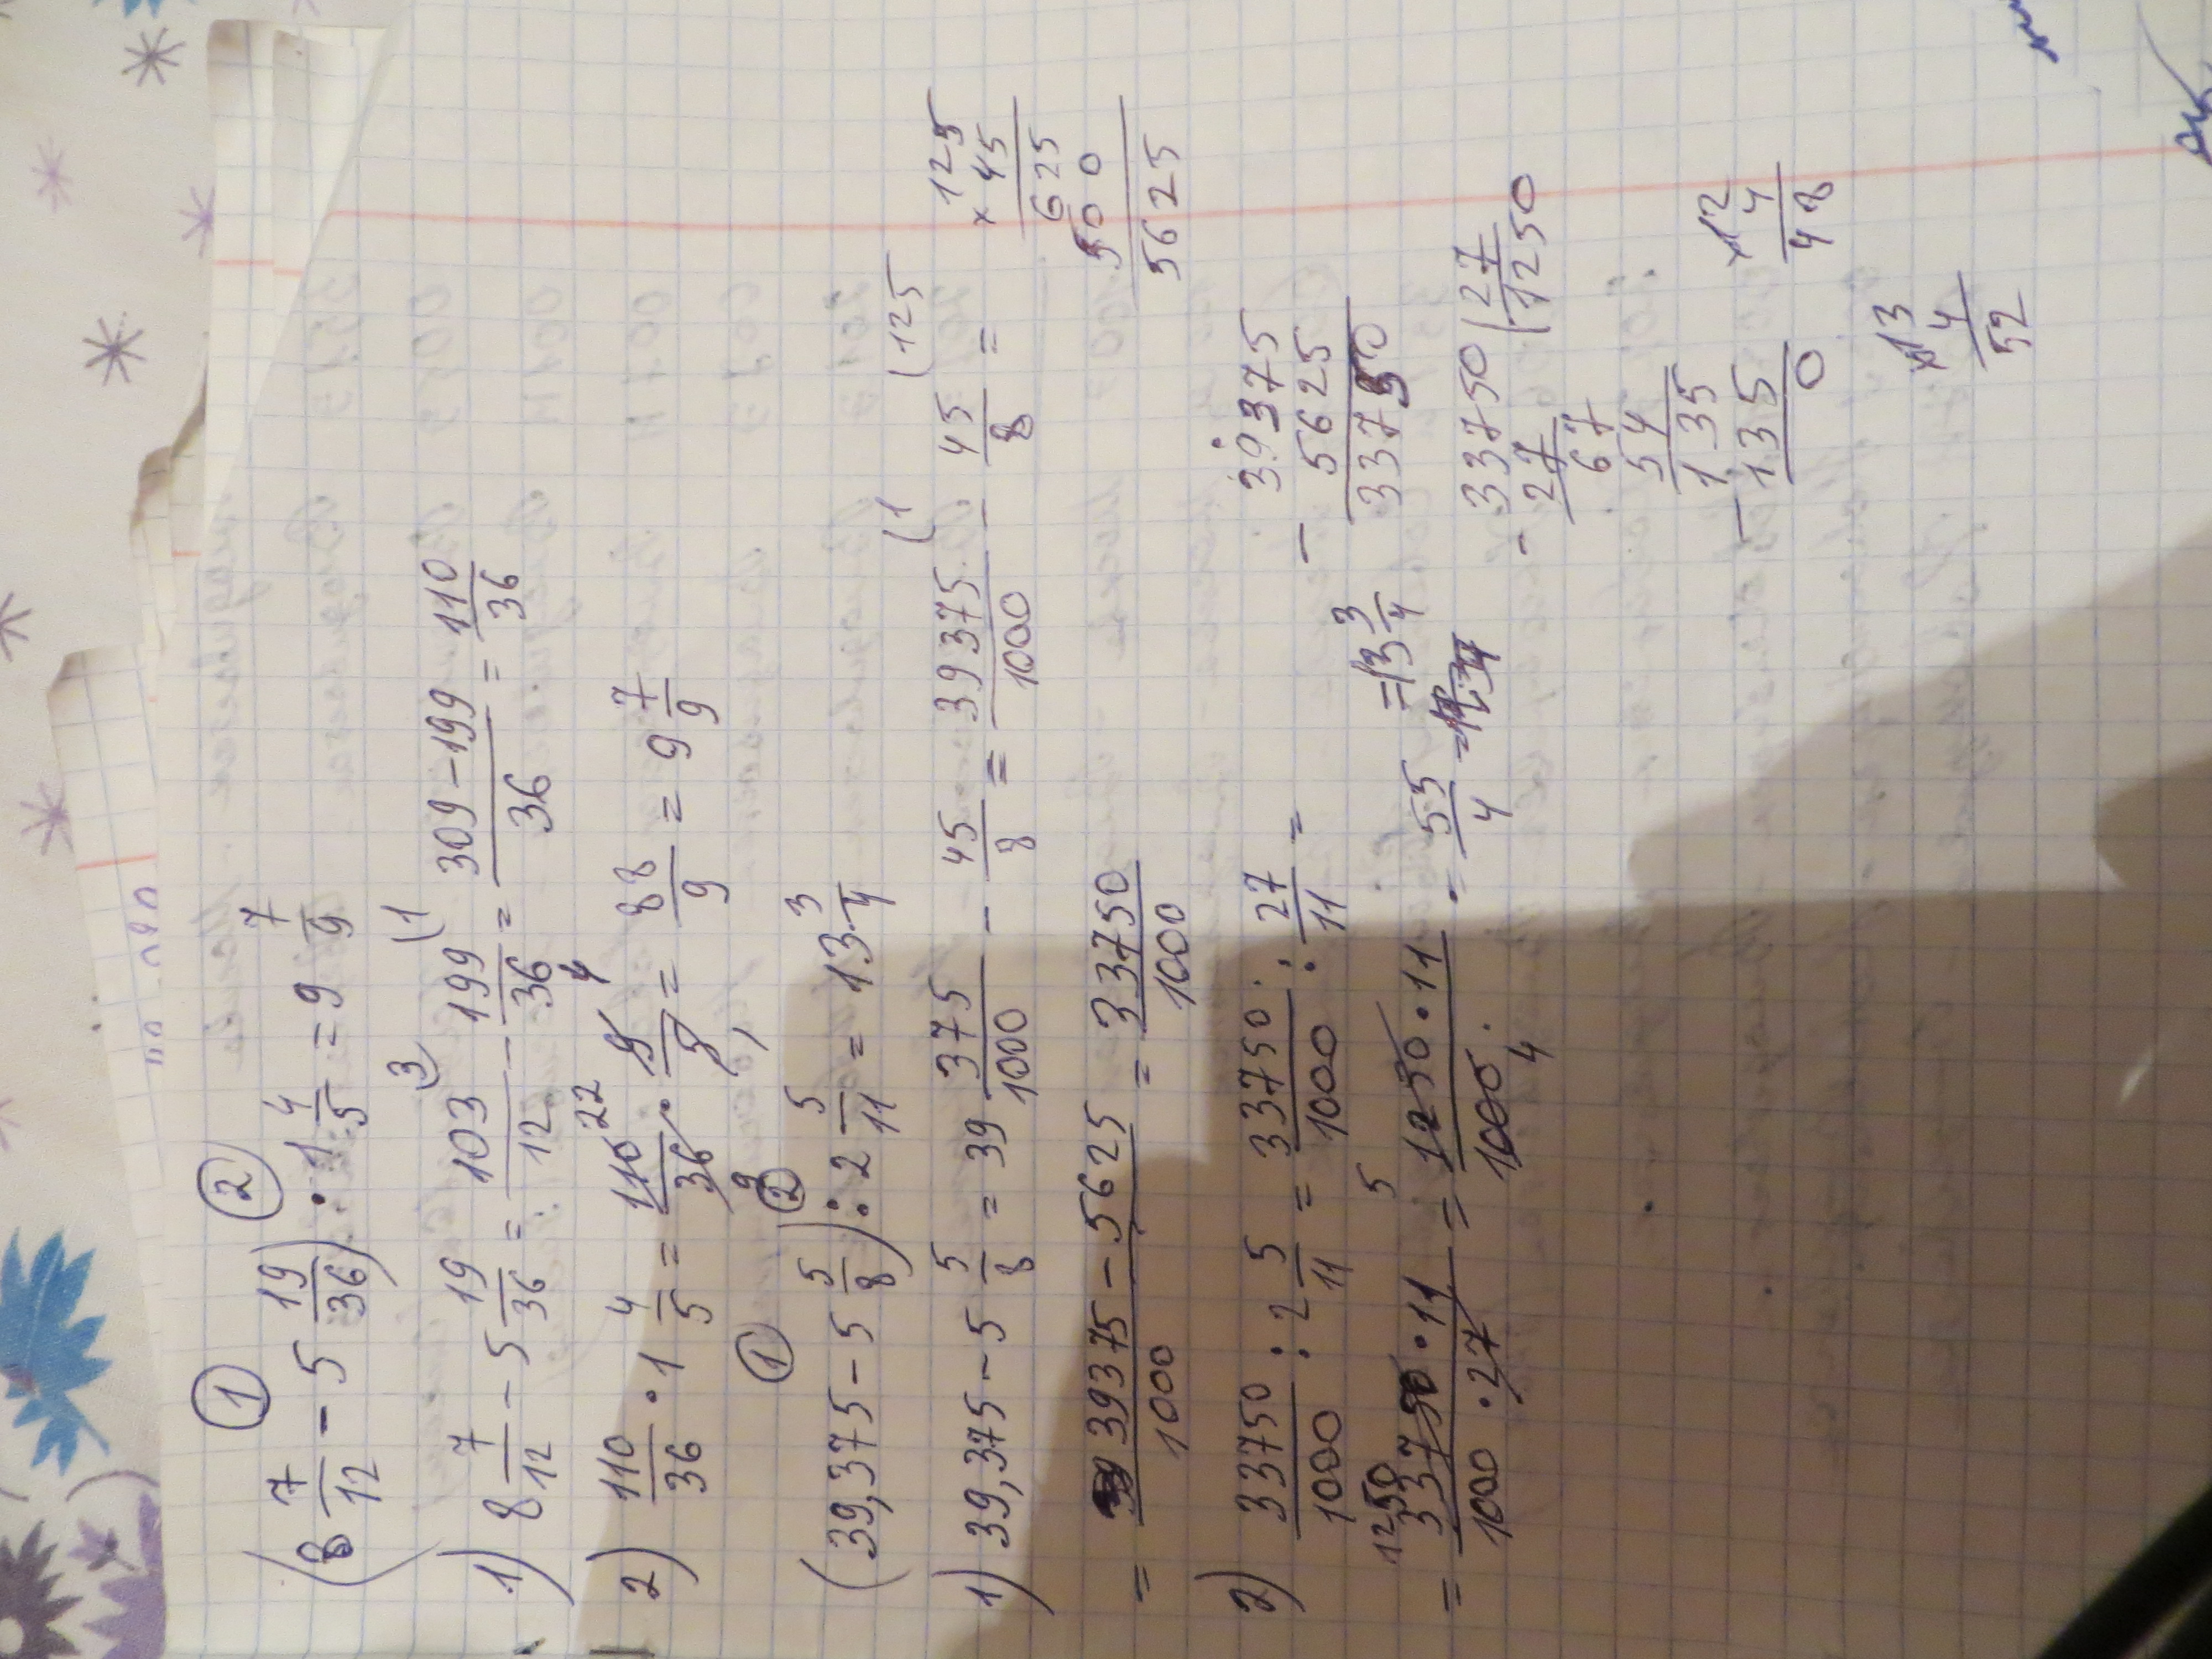 ① ②
(8 7/12 - 5 19/36) · 1 4/5 = 9 7/9
1) 8 7/12 - 5 19/36 = 103/12 (3 - 199/36 (1 = 309-199/36 = 110/36
2) 110/36 · 1 4/5 = 110/36 · 9/5 = 88/9 = 9 7/9
22 4
9
① ②
(39,375 - 5 5/8) : 2 5/11 = 13 3/4
1) 39,375 - 5 5/8 = 39 375/1000 - 45/8 = 39375/1000 (1 - 45/8 (125 =
= 39375 - 5625/1000 = 33750/1000
2) 33750/1000 : 2 5/11 = 33750/1000 : 27/11 =
1250 5
= 33750 · 11/1000 · 27 = 1250 · 11/1000 = 55/4 = 13 3/4
4
×125
45
625
500
5625
- 39375
5625
33750
- 33750 | 27
27 1250
67
54
135
- 135
0
×12
4
48
×13
4
52